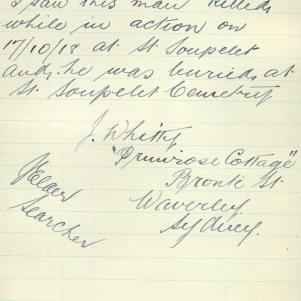 I saw this man killed
while in action on
17/10/18 at St. Soupelet
and he was buried at
St. Soupelet Cemetry
J. Whitty
"Primrose Cottage"
Bronte St.
Waverley
Sydney.
Searcher